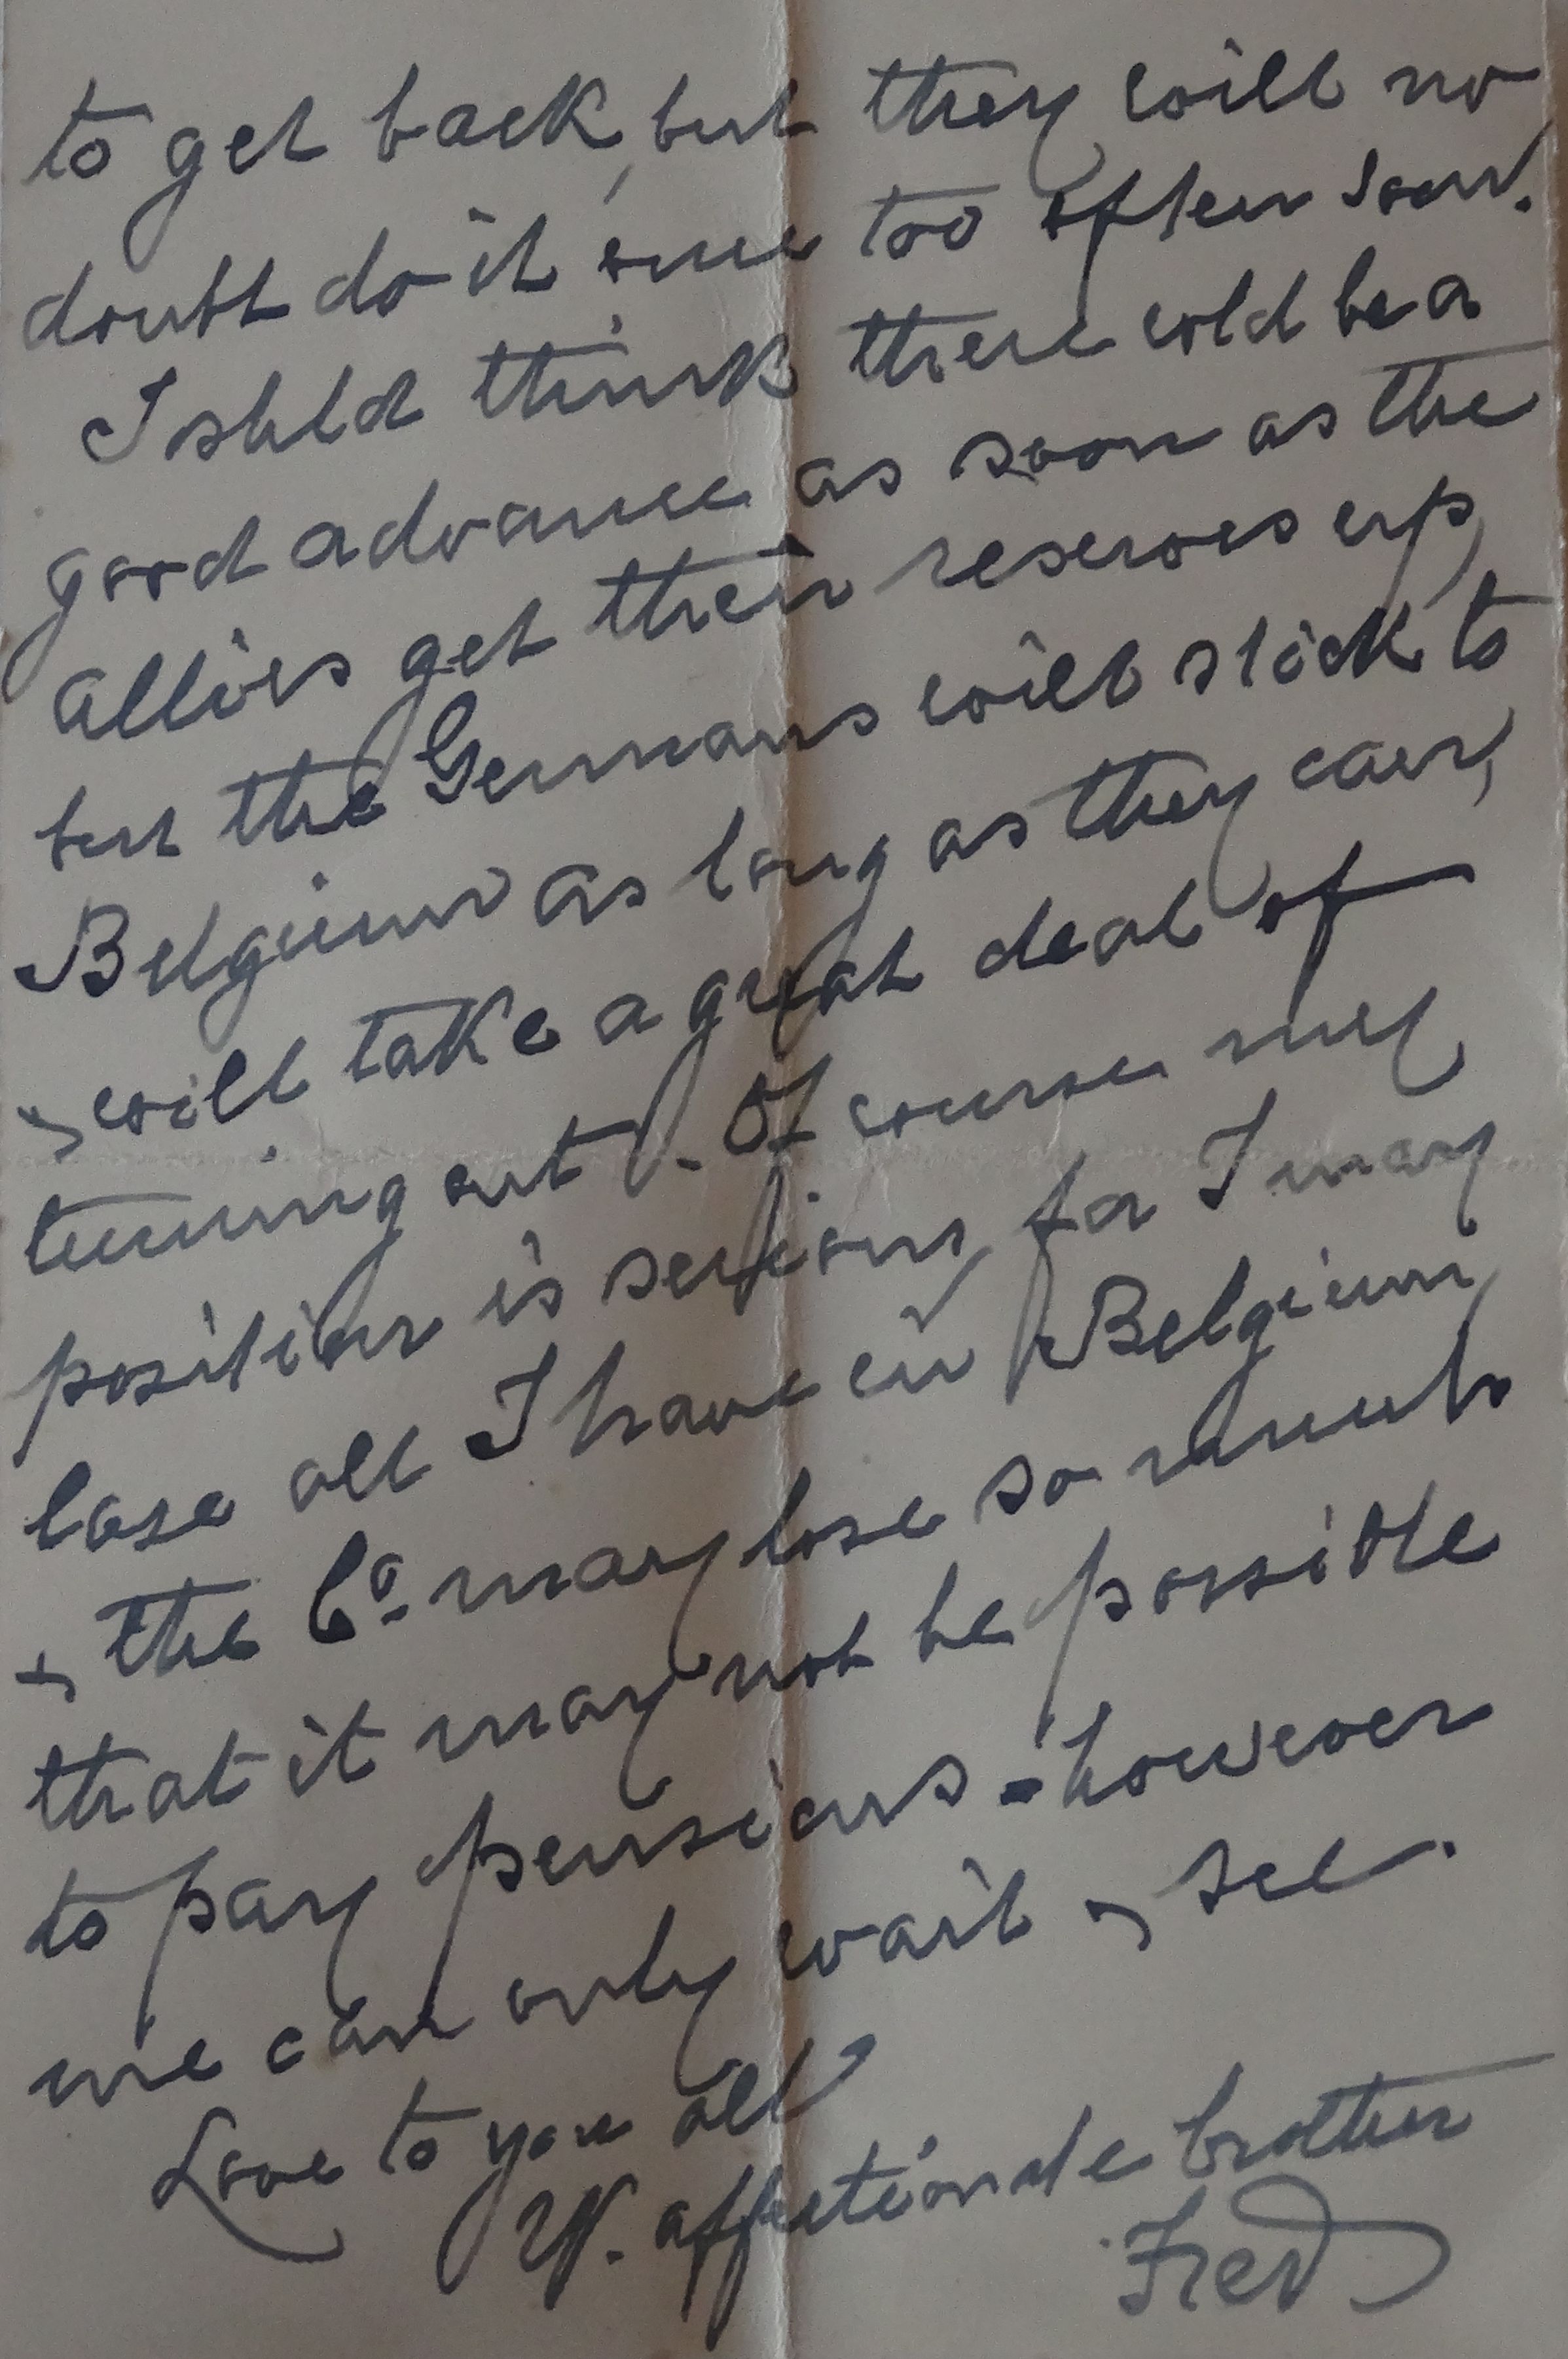 to get back, but they will no
doubt do it once too often soon.
I shld think there wld be a
good advance as soon as the
allies get their reserves up,
but the Germans will stick to
Belgium as long as they can,
& will take a great deal of
turning out. Of course my
position is serious, for I may
lose all I have in Belgium,
& the Co. may lose so much
that it may not be possible
to pay pensions - however
we can only wait & see.
Love to you all
Yr. affectionate brother
Fred